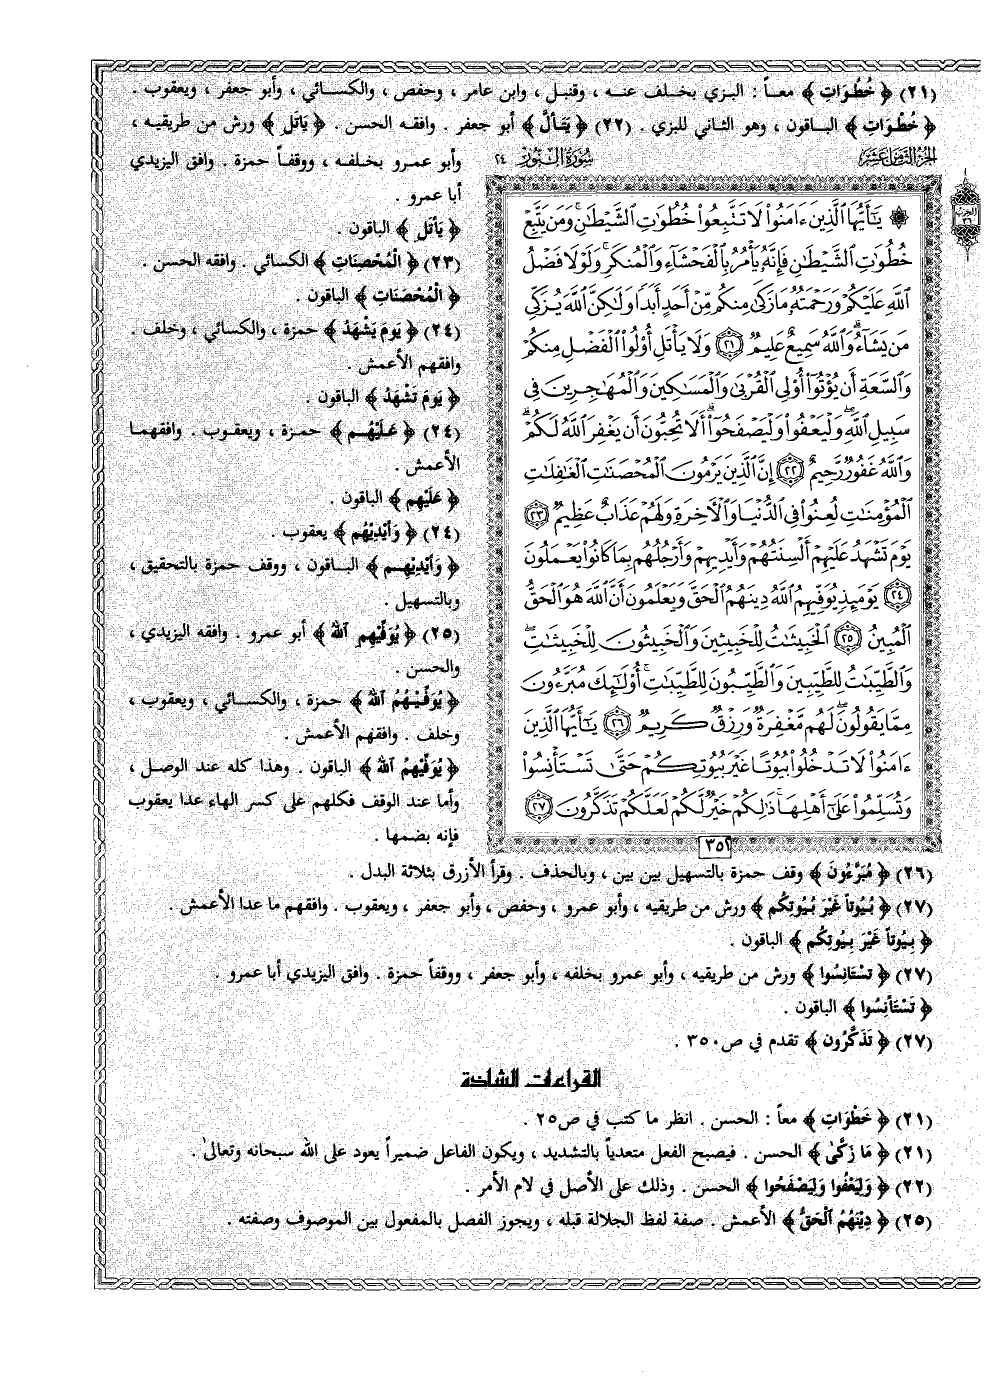 (٢١) ﴿ خُطُوَاتِ ﴾ معاً : البزي بخلف عنه ، وقنبل ، وابن عامر ، وحفص ، والكسائي ، وأبو جعفر ، ويعقوب .
﴿ خُطْوَاتِ ﴾ الباقون ، وهو الثاني للبزي . (٢٢) ﴿ يَتَأَلَّ ﴾ أبو جعفر . وافقه الحسن . ﴿ يَاتَلِ ﴾ ورش من طريقيه ،
وأبو عمرو بخلفه ، ووقفاً حمزة . وافق اليزيدي
أبا عمرو .
﴿ يَأْتَلِ ﴾ الباقون .
(٢٣) ﴿ الْمُحْصِنَاتِ ﴾ الكسائي . وافقه الحسن .
﴿ الْمُحْصَنَاتِ ﴾ الباقون .
(٢٤) ﴿ يَومَ يَشْهَدُ ﴾ حمزة ، والكسائي ، وخلف .
وافقهم الأعمش .
﴿ يَومَ تَشْهَدُ ﴾ الباقون .
(٢٤) ﴿ عَلَيْهُم ﴾ حمزة ، ويعقوب . وافقهما
الأعمش .
﴿ عَلَيْهِم ﴾ الباقون .
(٢٤) ﴿ وَأَيْدِيْهُم ﴾ يعقوب .
﴿ وَأَيْدِيْهِم ﴾ الباقون ، ووقف حمزة بالتحقيق ،
وبالتسهيل .
(٢٥) ﴿ يُوَفِّيْهِمِ اللهُ ﴾ أبو عمرو . وافقه اليزيدي ،
والحسن .
﴿ يُوَفِّيْهُمُ اللهُ ﴾ حمزة ، والكسائي ، ويعقوب ،
وخلف . وافقهم الأعمش .
﴿ يُوَفِّيْهِمُ اللهُ ﴾ الباقون . وهذا كله عند الوصل ،
وأما عند الوقف فكلهم على كسر الهاء عدا يعقوب
فإنه بضمها .
الجزء الثامن عشر
سورة النور ٢٤
۞ يَٰٓأَيُّهَا ٱلَّذِينَ ءَامَنُوا۟ لَا تَتَّبِعُوا۟ خُطُوَٰتِ ٱلشَّيْطَٰنِ ۚ وَمَن يَتَّبِعْ
خُطُوَٰتِ ٱلشَّيْطَٰنِ فَإِنَّهُۥ يَأْمُرُ بِٱلْفَحْشَآءِ وَٱلْمُنكَرِ ۚ وَلَوْلَا فَضْلُ
ٱللَّهِ عَلَيْكُمْ وَرَحْمَتُهُۥ مَا زَكَىٰ مِنكُم مِّنْ أَحَدٍ أَبَدًا وَلَٰكِنَّ ٱللَّهَ يُزَكِّى
مَن يَشَآءُ ۗ وَٱللَّهُ سَمِيعٌ عَلِيمٌ ٢١ وَلَا يَأْتَلِ أُو۟لُوا۟ ٱلْفَضْلِ مِنكُمْ
وَٱلسَّعَةِ أَن يُؤْتُوٓا۟ أُو۟لِى ٱلْقُرْبَىٰ وَٱلْمَسَٰكِينَ وَٱلْمُهَٰجِرِينَ فِى
سَبِيلِ ٱللَّهِ ۖ وَلْيَعْفُوا۟ وَلْيَصْفَحُوٓا۟ ۗ أَلَا تُحِبُّونَ أَن يَغْفِرَ ٱللَّهُ لَكُمْ ۗ
وَٱللَّهُ غَفُورٌ رَّحِيمٌ ٢٢ إِنَّ ٱلَّذِينَ يَرْمُونَ ٱلْمُحْصَنَٰتِ ٱلْغَٰفِلَٰتِ
ٱلْمُؤْمِنَٰتِ لُعِنُوا۟ فِى ٱلدُّنْيَا وَٱلْءَاخِرَةِ وَلَهُمْ عَذَابٌ عَظِيمٌ ٢٣
يَوْمَ تَشْهَدُ عَلَيْهِمْ أَلْسِنَتُهُمْ وَأَيْدِيهِمْ وَأَرْجُلُهُم بِمَا كَانُوا۟ يَعْمَلُونَ
٢٤ يَوْمَئِذٍ يُوَفِّيهِمُ ٱللَّهُ دِينَهُمُ ٱلْحَقَّ وَيَعْلَمُونَ أَنَّ ٱللَّهَ هُوَ ٱلْحَقُّ
ٱلْمُبِينُ ٢٥ ٱلْخَبِيثَٰتُ لِلْخَبِيثِينَ وَٱلْخَبِيثُونَ لِلْخَبِيثَٰتِ ۖ
وَٱلطَّيِّبَٰتُ لِلطَّيِّبِينَ وَٱلطَّيِّبُونَ لِلطَّيِّبَٰتِ ۚ أُو۟لَٰٓئِكَ مُبَرَّءُونَ
مِمَّا يَقُولُونَ ۖ لَهُم مَّغْفِرَةٌ وَرِزْقٌ كَرِيمٌ ٢٦ يَٰٓأَيُّهَا ٱلَّذِينَ
ءَامَنُوا۟ لَا تَدْخُلُوا۟ بُيُوتًا غَيْرَ بُيُوتِكُمْ حَتَّىٰ تَسْتَأْنِسُوا۟
وَتُسَلِّمُوا۟ عَلَىٰٓ أَهْلِهَا ۚ ذَٰلِكُمْ خَيْرٌ لَّكُمْ لَعَلَّكُمْ تَذَكَّرُونَ ٢٧
٣٥٢
(٢٦) ﴿ مُبَرَّءُونَ ﴾ وقف حمزة بالتسهيل بين بين ، وبالحذف . وقرأ الأزرق بثلاثة البدل .
(٢٧) ﴿ بُيُوتاً غَيْرَ بُيُوتِكُم ﴾ ورش من طريقيه ، وأبو عمرو ، وحفص ، وأبو جعفر ، ويعقوب . وافقهم ما عدا الأعمش .
﴿ بِيُوتاً غَيْرَ بِيُوتِكُم ﴾ الباقون .
(٢٧) ﴿ تَسْتَانِسُوا ﴾ ورش من طريقيه ، وأبو عمرو بخلفه ، وأبو جعفر ، ووقفاً حمزة . وافق اليزيدي أبا عمرو .
﴿ تَسْتَأْنِسُوا ﴾ الباقون .
(٢٧) ﴿ تَذَكَّرُون ﴾ تقدم في ص٣٥٠ .
القراءات الشاذة
(٢١) ﴿ خَطْوَاتِ ﴾ معاً : الحسن . انظر ما كتب في ص٢٥ .
(٢١) ﴿ مَا زَكَّىٰ ﴾ الحسن . فيصبح الفعل متعدياً بالتشديد ، ويكون الفاعل ضميراً يعود على الله سبحانه وتعالىٰ .
(٢٢) ﴿ وَلِيَعْفُوا وَلِيَصْفَحُوا ﴾ الحسن . وذلك على الأصل في لام الأمر .
(٢٥) ﴿ دِيْنَهُمُ الْحَقُّ ﴾ الأعمش . صفة لفظ الجلالة قبله ، ويجوز الفصل بالمفعول بين الموصوف وصفته .